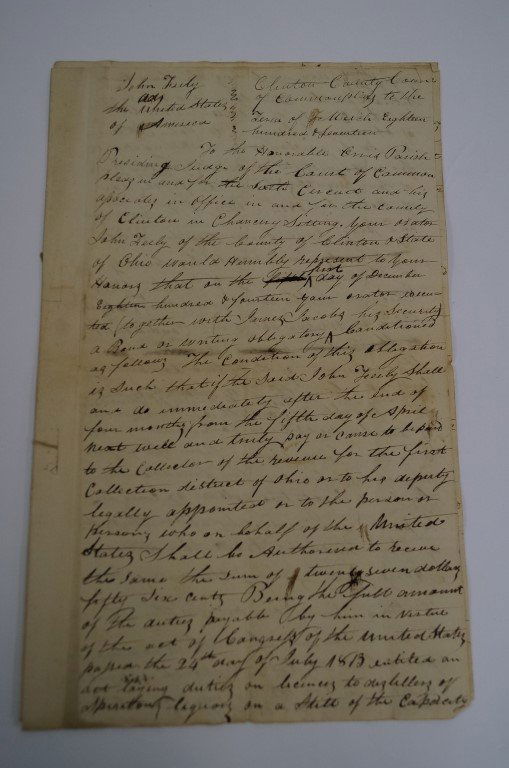 John Feely } Clinton County Court
ads } of Common pleas to the
the United States } Term of March Eighteen
of America } hundred & seventeen
To the Honorable Orris Parish
Presiding Judge of the Court of Common
pleas in and for the Circuit and his
associates in office in and for the County
of Clinton in Chancery Sitting. Your orator
John Feely of the County of Clinton & State
of Ohio would Humbly represent to Your
Honors that on the first day of December
Eighteen hundred & fourteen Your orator execu-
ted together with James Jacobs his Security
a Bond or writing obligatory Conditioned
as follows The Condition of this obligation
is Such that if the Said John Feely Shall
and do immediately after the end of
four months from the fifth day of April
next well and truly pay or cause to be paid
to the Collector of the revenue for the first
Collection district of Ohio or to his deputy
legally appointed or to the person or
persons who on behalf of the United
States Shall be Authorised to receive
the same the sum of twenty seven dollars
fifty six cents Being the full amount
of the duties payable by him in virtue
of the act of Congress of the United States
passed the 24th day of July 1813 entitled an
act laying duties on licences to distillers of
Spiritous liquors on a Still of the Capacity